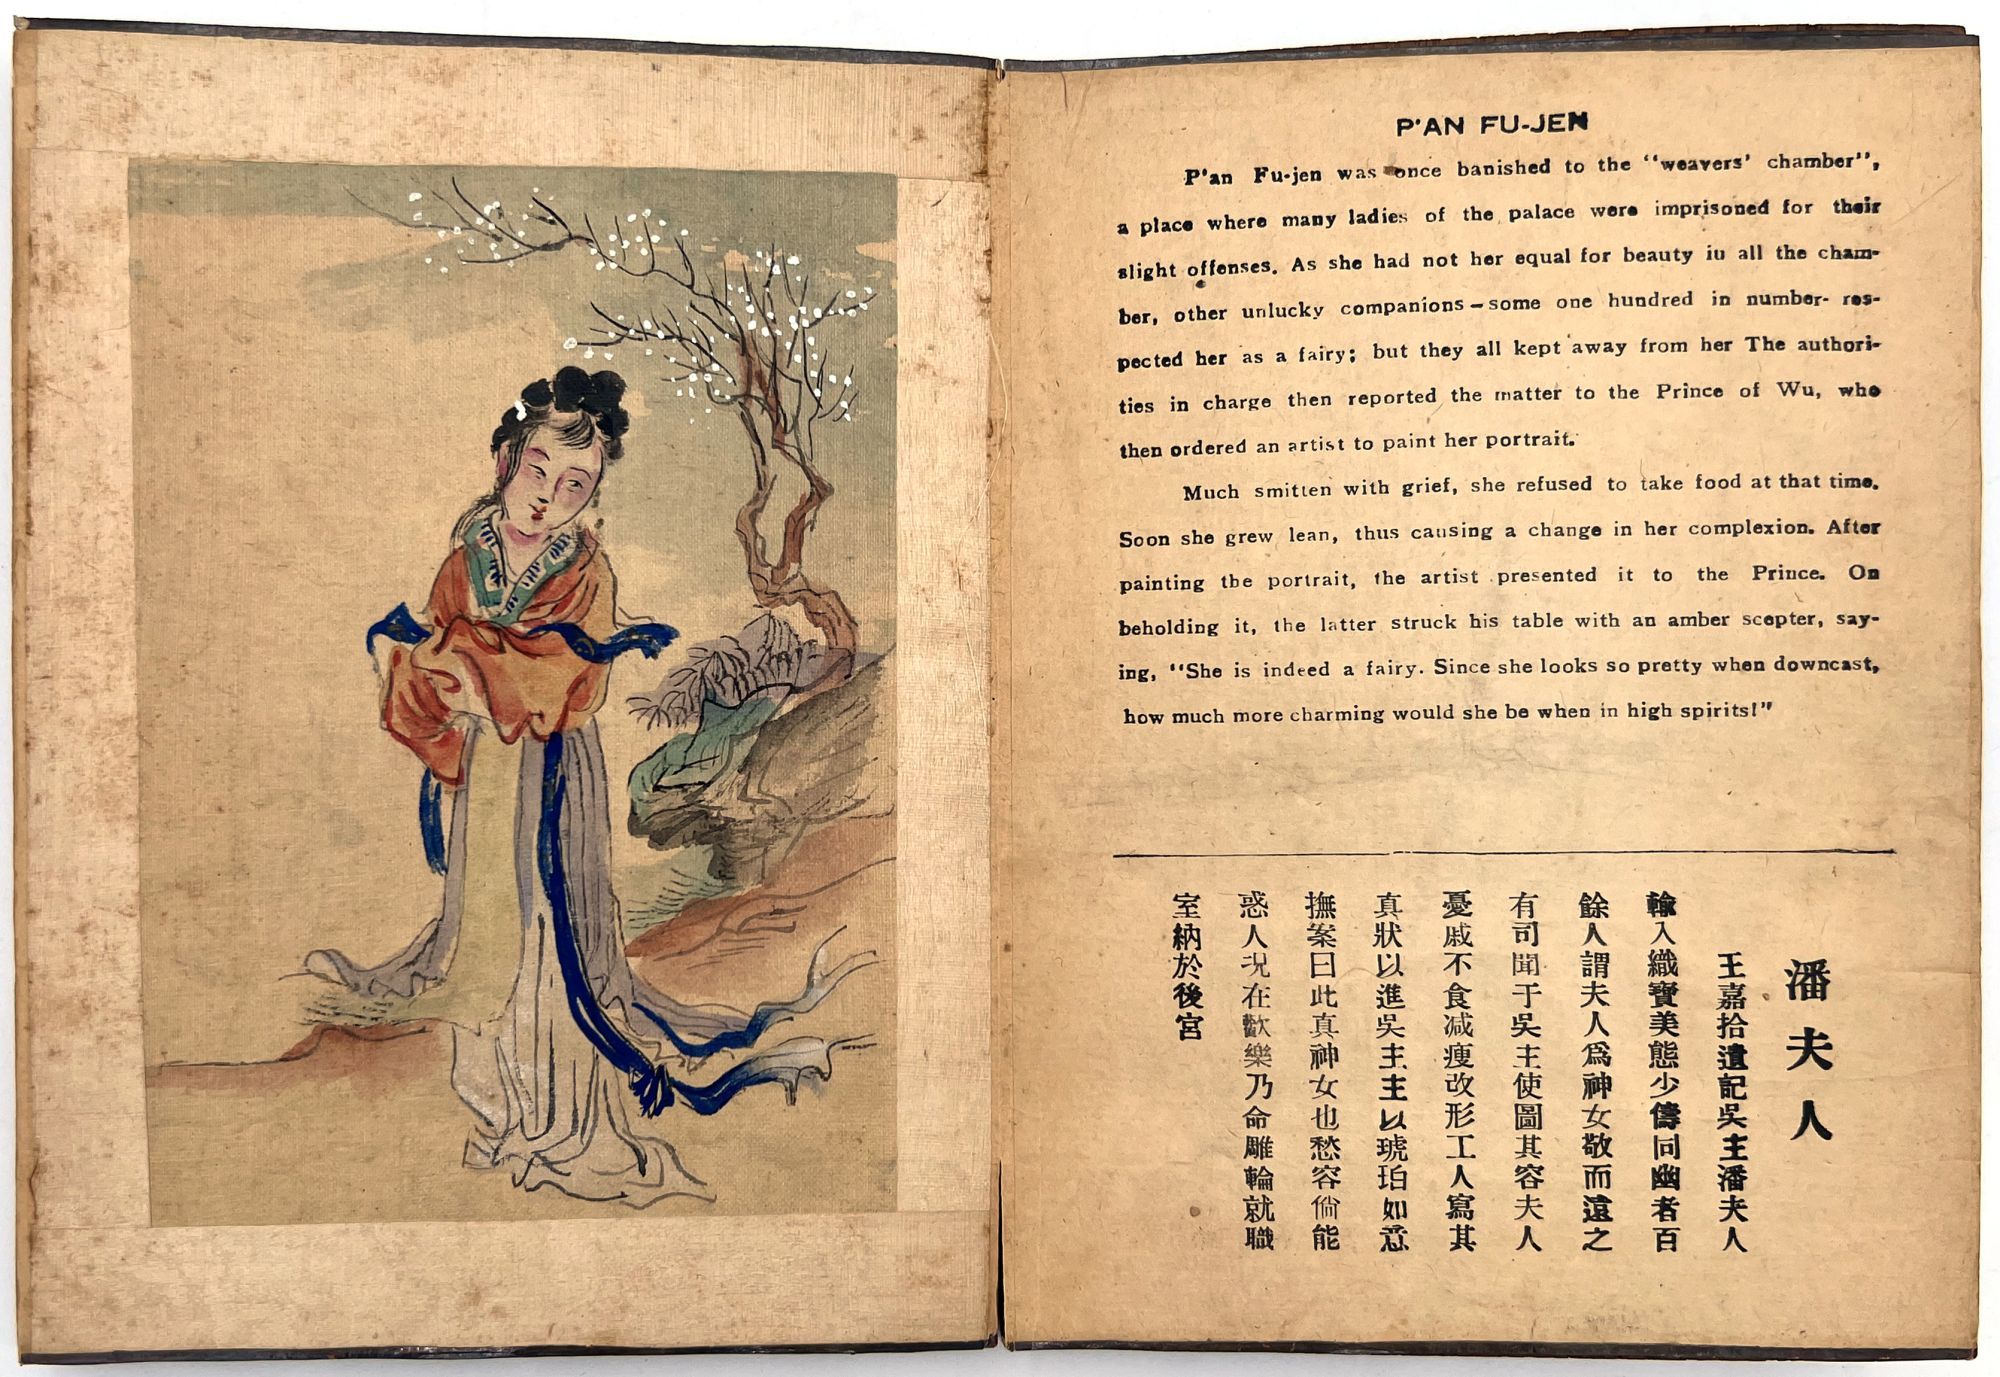 P'AN FU-JEN
P'an Fu-jen was once banished to the "weavers' chamber",
a place where many ladies of the palace were imprisoned for their
slight offenses. As she had not her equal for beauty iu all the cham-
ber, other unlucky companions – some one hundred in number- res-
pected her as a fairy; but they all kept away from her The authori-
ties in charge then reported the matter to the Prince of Wu, who
then ordered an artist to paint her portrait.
Much smitten with grief, she refused to take food at that time.
Soon she grew lean, thus causing a change in her complexion. After
painting the portrait, the artist presented it to the Prince. On
beholding it, the latter struck his table with an amber scepter, say-
ing, "She is indeed a fairy. Since she looks so pretty when downcast,
how much more charming would she be when in high spirits!"
潘夫人
王嘉拾遺記吳主潘夫人
輸入織寶美態少儔同幽者百
餘人謂夫人爲神女敬而遠之
有司聞于吳主使圖其容夫人
憂戚不食減瘦改形工人寫其
真狀以進吳主主以琥珀如意
撫案曰此真神女也愁容倘能
惑人况在歡樂乃命雕輪就職
室納於後宮